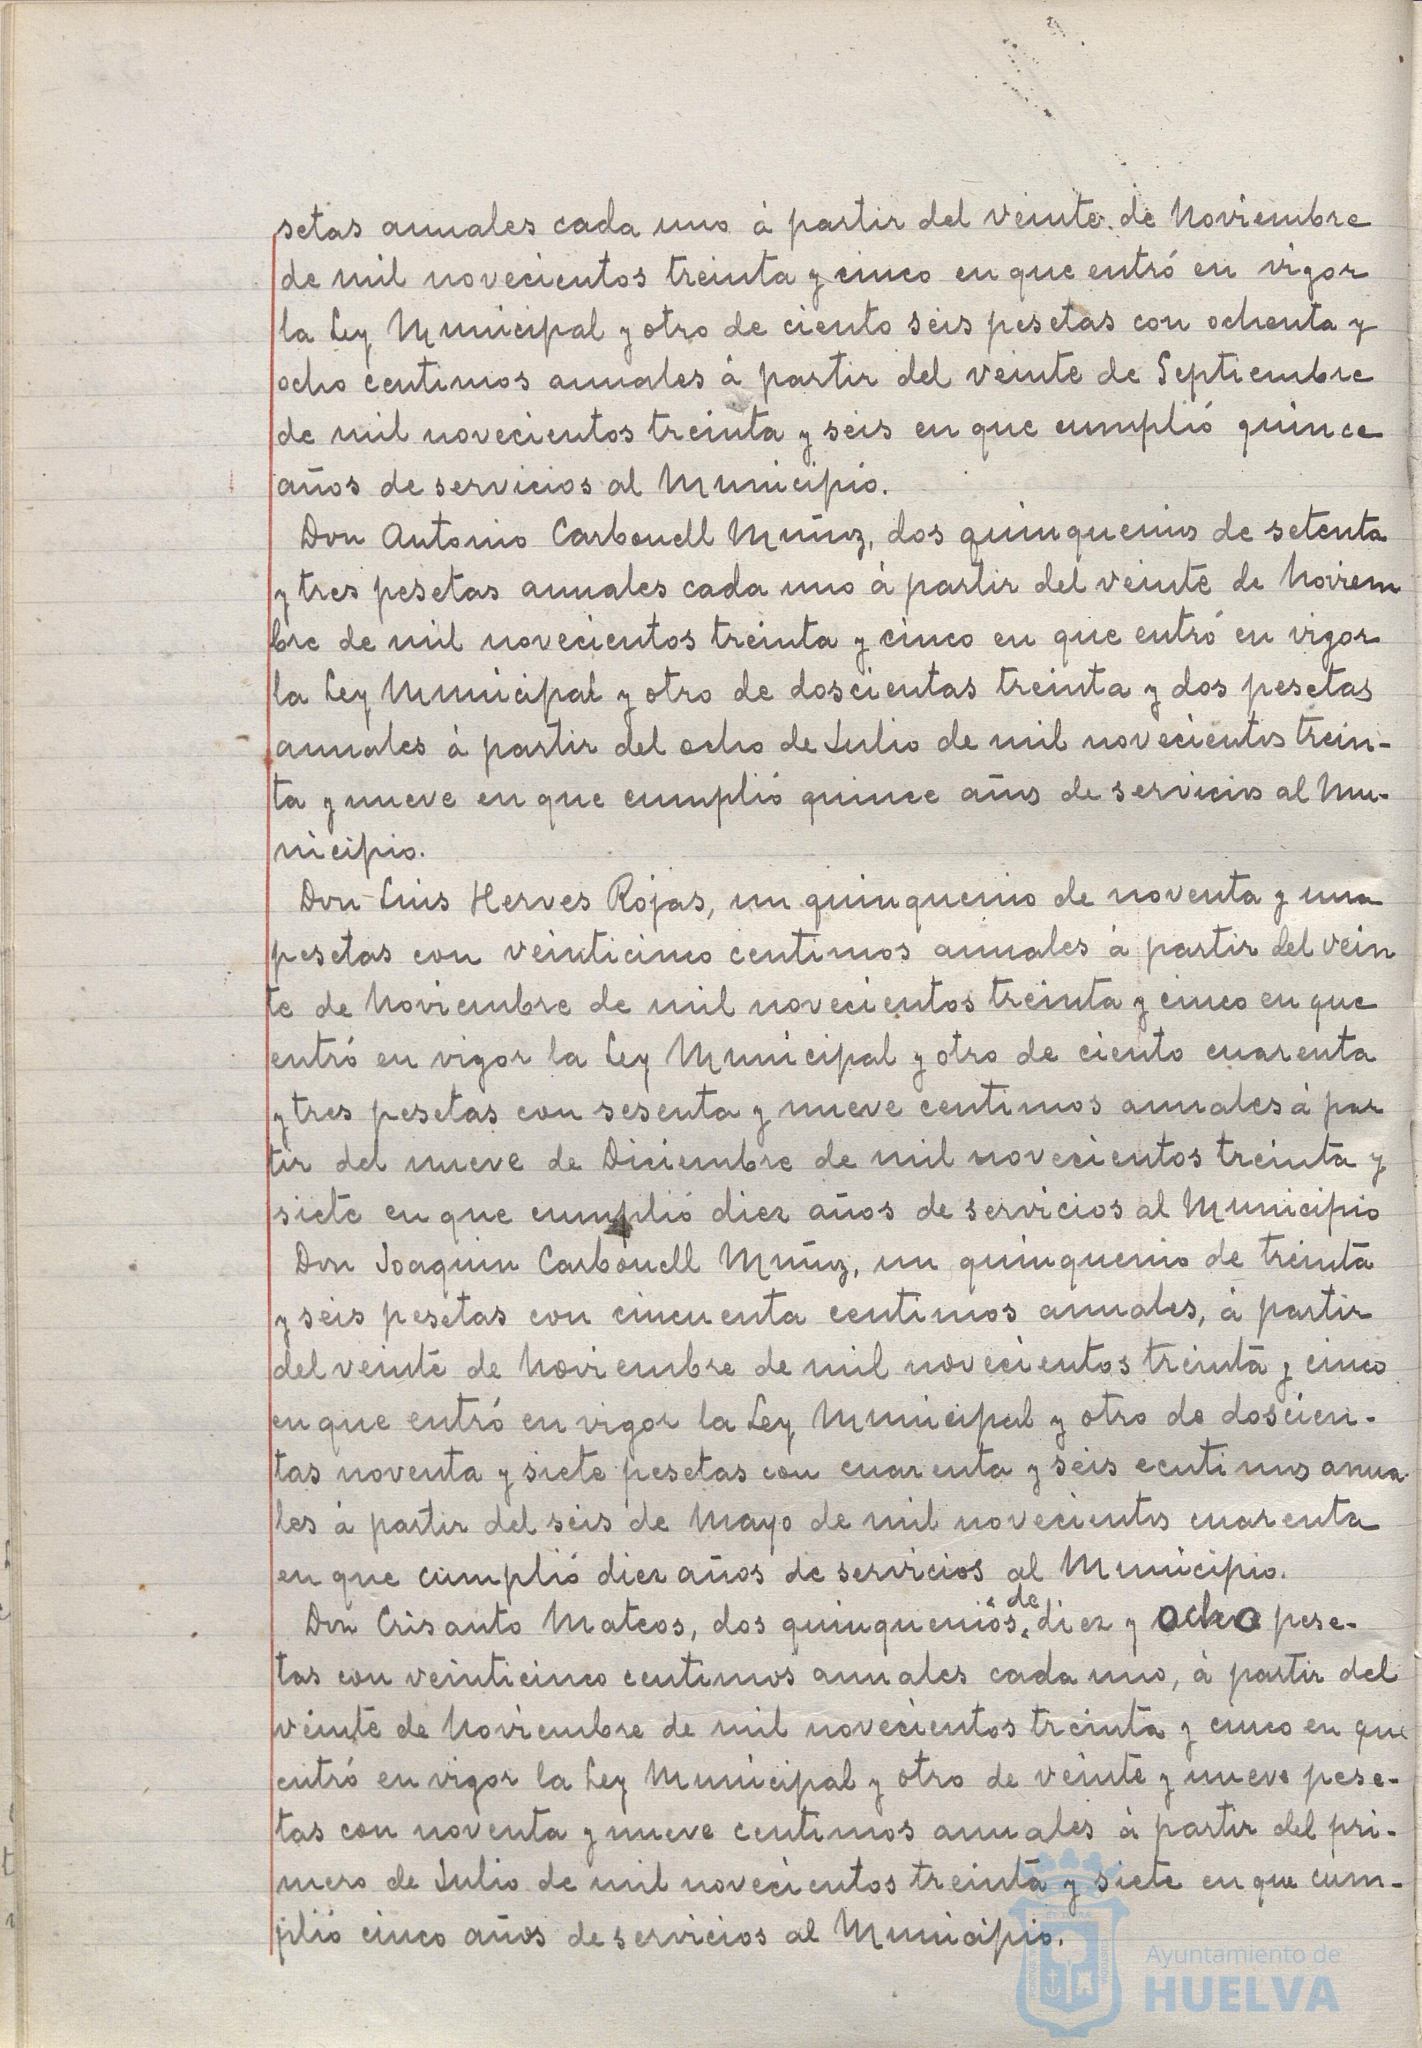 setas anuales cada uno à partir del veinte de Noviembre
de mil novecientos treinta y cinco en que entró en vigor
la Ley Municipal y otro de ciento seis pesetas con ochenta y
ocho centimos anuales à partir del veinte de Septiembre
de mil novecientos treinta y seis en que cumplió quince
años de servicios al Municipio.
Don Antonio Carbonell Muñoz, dos quinquenios de setenta
y tres pesetas anuales cada uno à partir del veinte de Noviem
bre de mil novecientos treinta y cinco en que entró en vigor
la Ley Municipal y otro de doscientas treinta y dos pesetas
anuales à partir del ocho de Julio de mil novecientos trein-
ta y nueve en que cumplió quince años de servicios al Mu-
nicipio.
Don Luis Herves Rojas, un quinquenio de noventa y una
pesetas con veinticinco centimos anuales à partir del vein
te de Noviembre de mil novecientos treinta y cinco en que
entró en vigor la Ley Municipal y otro de ciento cuarenta
y tres pesetas con sesenta y nueve centimos anuales à par
tir del nueve de Diciembre de mil novecientos treinta y
siete en que cumplió diez años de servicios al Municipio
Don Joaquin Carbonell Muñoz, un quinquenio de treinta
y seis pesetas con cincuenta centimos anuales, à partir
del veinte de Noviembre de mil novecientos treinta y cinco
en que entró en vigor la Ley Municipal y otro de doscien-
tas noventa y siete pesetas con cuarenta y seis centimos anua
les à partir del seis de Mayo de mil novecientos cuarenta
en que cumplió diez años de servicios al Municipio.
Don Crisanto Mateos, dos quinquenios de diez y ocho pese-
tas con veinticinco centimos anuales cada uno, à partir del
veinte de Noviembre de mil novecientos treinta y cinco en que
entró en vigor la Ley Municipal y otro de veinte y nueve pese-
tas con noventa y nueve centimos anuales à partir del pri-
mero de Julio de mil novecientos treinta y siete en que cum-
plió cinco años de servicios al Municipio.
Ayuntamiento de
HUELVA